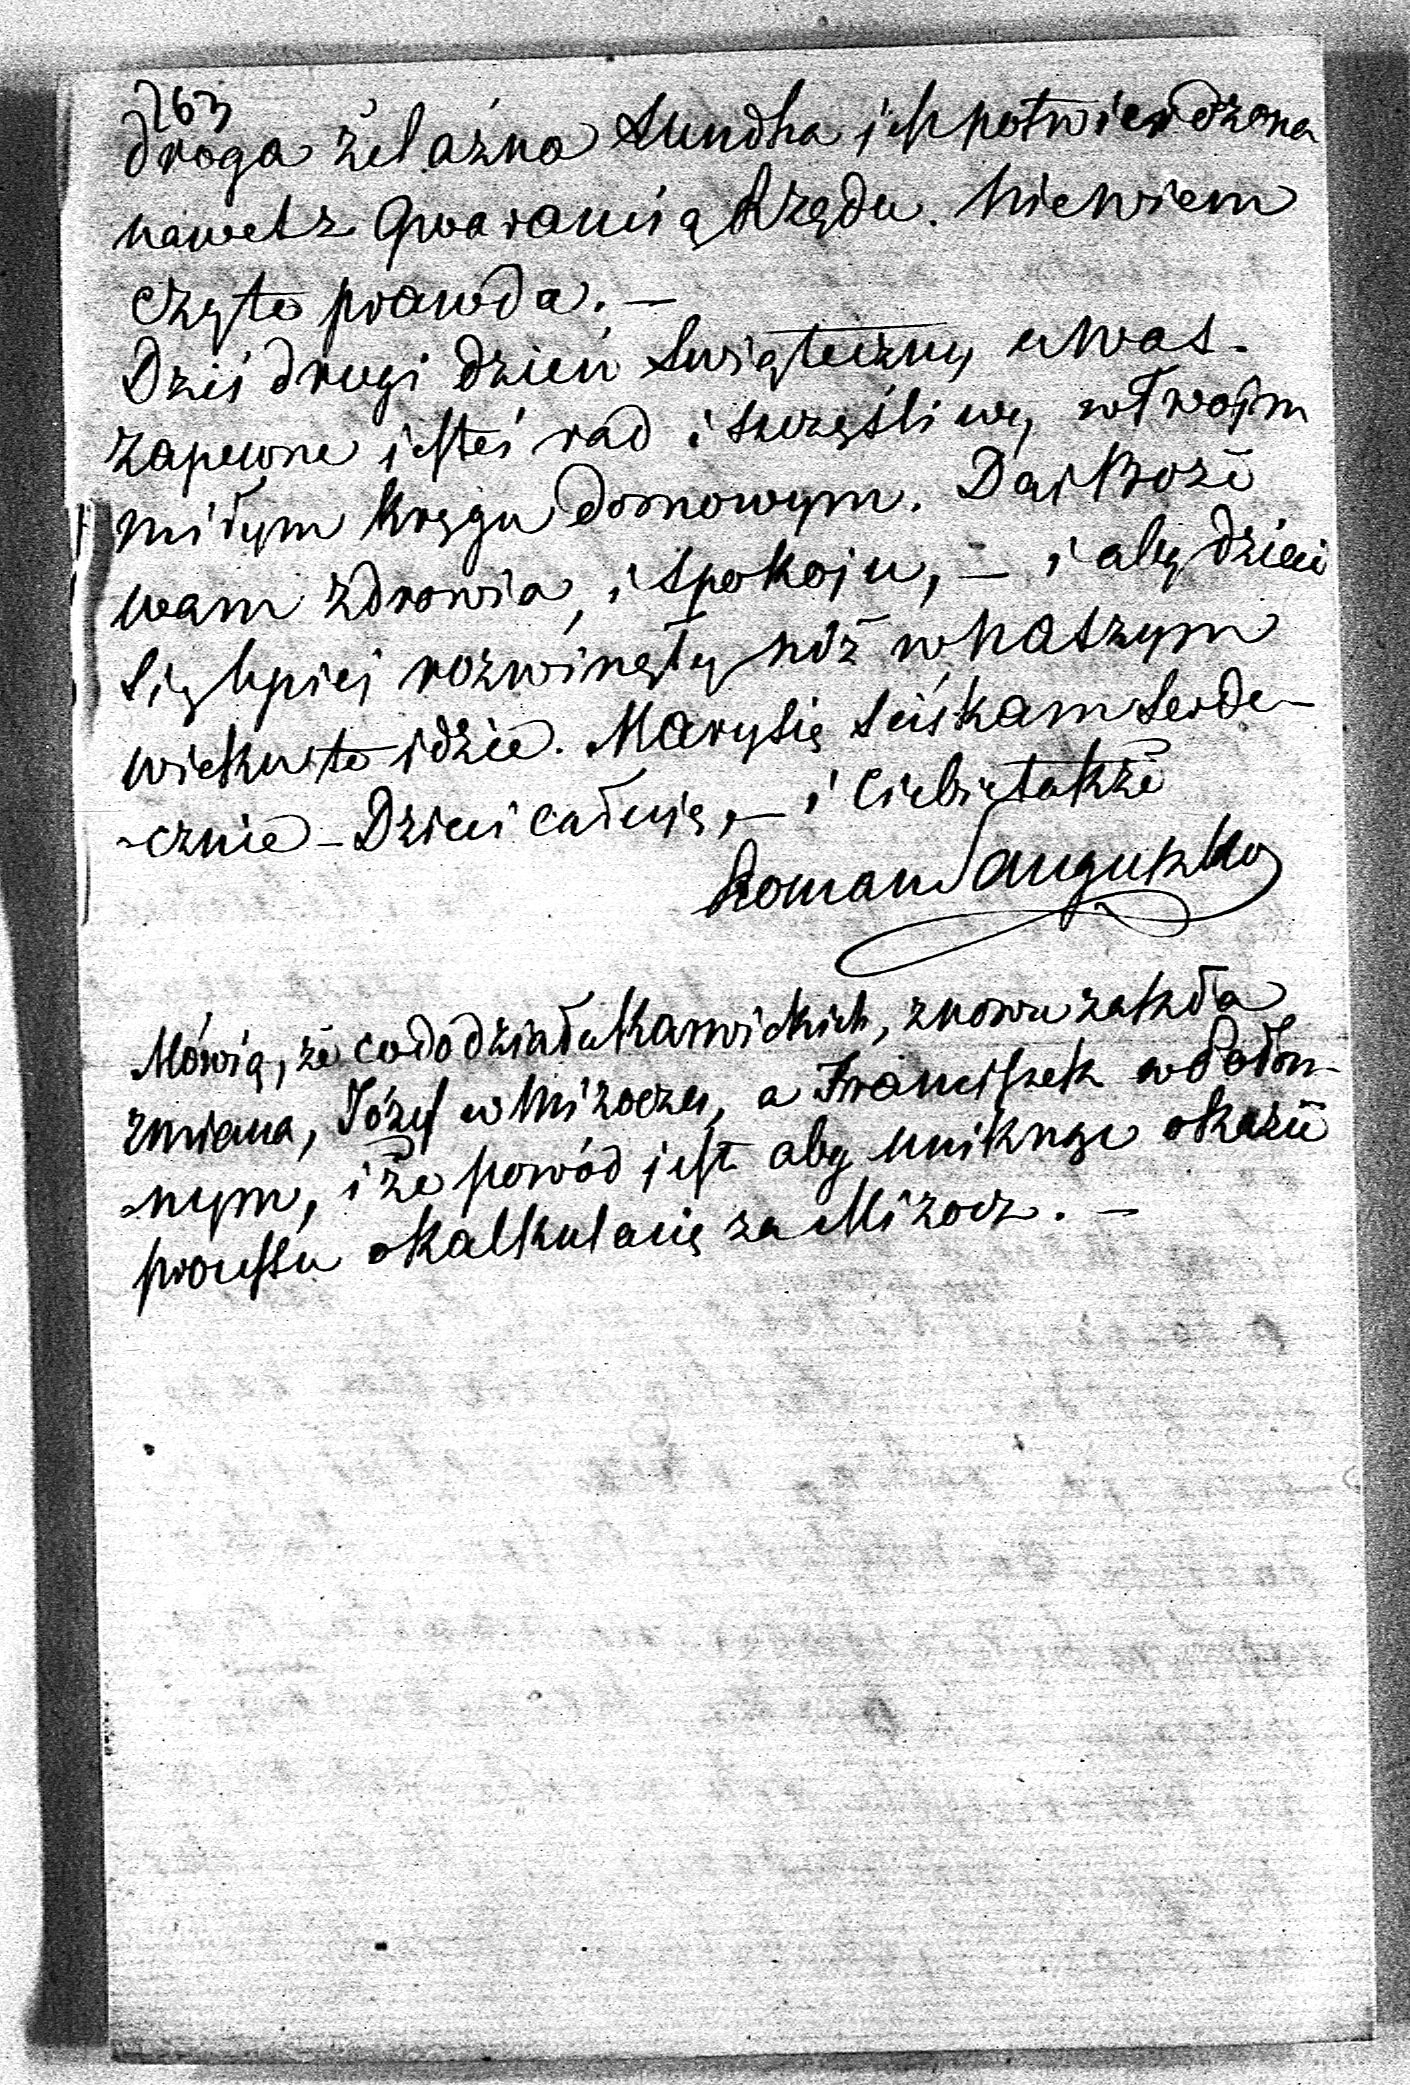 263
droga żelazna Sundha jest potwierdzona
nawet z Gwarancią Rządu. Niewiem
czyto prawda. —
Dziś drugi dzień Swiąteczny u Was.
Zapewne jesteś rad i szczęśliwy w Twojm
miłym kręgu domowym. Daj Boże
wam zdrowia, i spokoju, — i aby dzieci
się lepiej rozwinęły niż w naszym
wieku to idzie. Marysię sciskam serde-
-cznie – Dzieci całuję, — i Ciebie także
Roman Sanguszko
Mówią, że co do działu Karwickich, znowu zaszła
zmiana, Józef w Mizoczu, a Franciszek w
-nym, i że powód jest aby uniknąć okazii
processu o kalkulacię za Mizocz. —